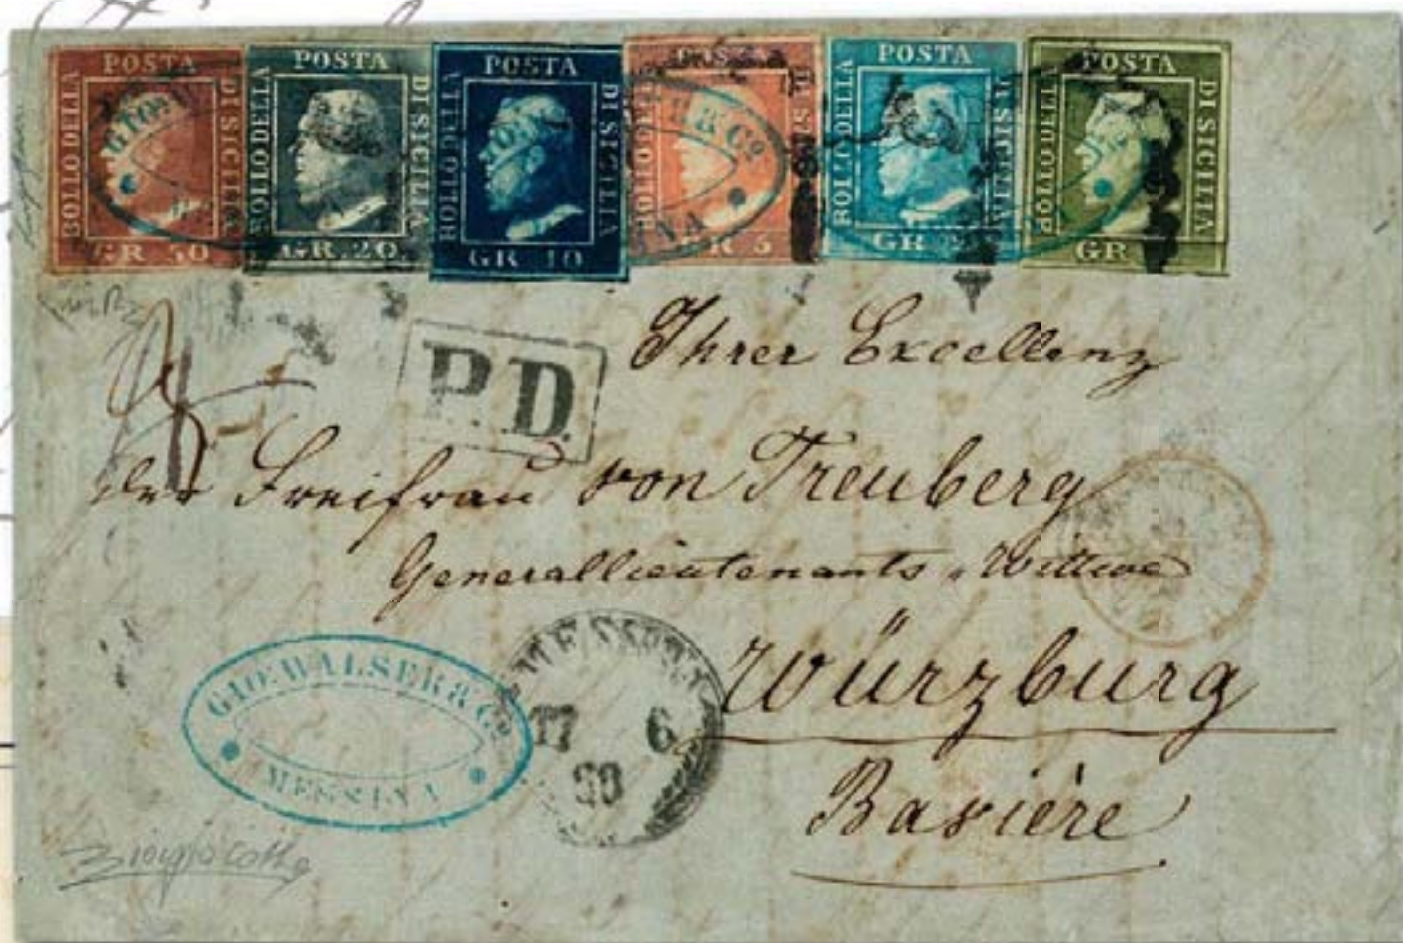 POSTA
BOLLO DELLA
DI SICILIA
GR 50
POSTA
BOLLO DELLA
DI SICILIA
GR. 20
POSTA
BOLLO DELLA
DI SICILIA
GR 10
POSTA
BOLLO DELLA
GR 5
& Cº
POSTA
BOLLO DELLA
DI SICILIA
GR 2
POSTA
BOLLO DELLA
DI SICILIA
GR
P.D.
Ihrer Excellenz
der Freifrau von Treuberg
Generallieutenants-Wittwe
Würzburg
Bavière
GIO. WALSER & Cº
MESSINA
MESSINA
17 6
60